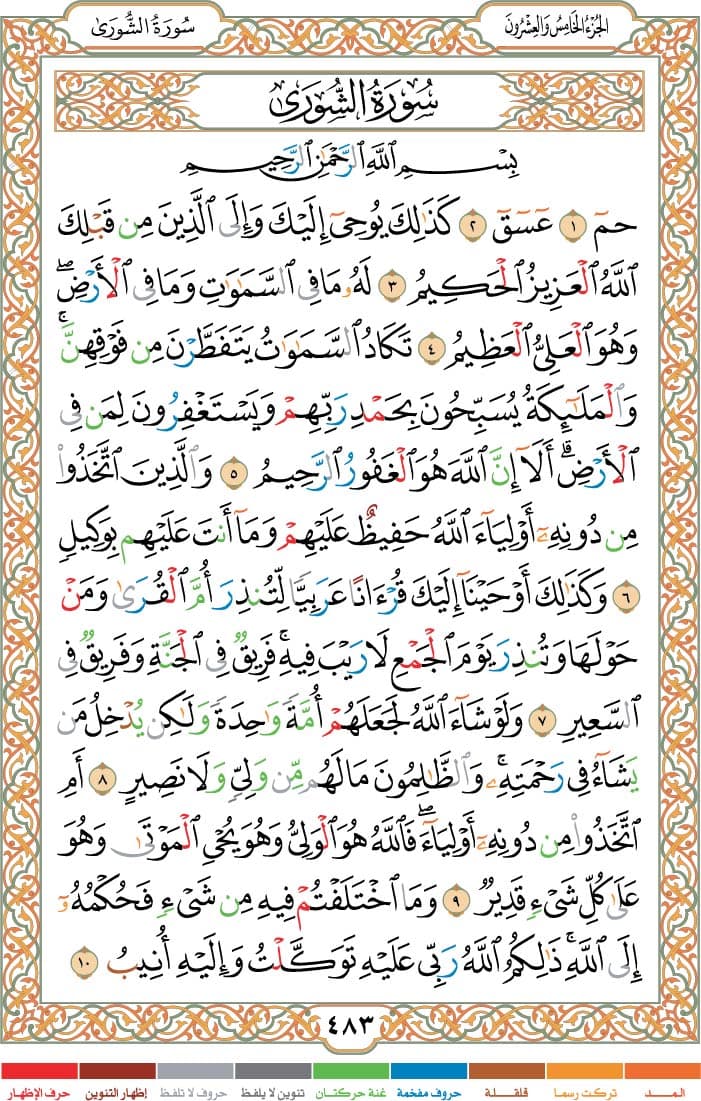 الجزء الخامس والعشرون
سورة الشورى
سُورَةُ الشُّورَىٰ
بِسْمِ ٱللَّهِ ٱلرَّحْمَٰنِ ٱلرَّحِيمِ
حمٓ ١ عٓسٓقٓ ٢ كَذَٰلِكَ يُوحِىٓ إِلَيْكَ وَإِلَى ٱلَّذِينَ مِن قَبْلِكَ
ٱللَّهُ ٱلْعَزِيزُ ٱلْحَكِيمُ ٣ لَهُۥ مَا فِى ٱلسَّمَٰوَٰتِ وَمَا فِى ٱلْأَرْضِۖ
وَهُوَ ٱلْعَلِىُّ ٱلْعَظِيمُ ٤ تَكَادُ ٱلسَّمَٰوَٰتُ يَتَفَطَّرْنَ مِن فَوْقِهِنَّۚ
وَٱلْمَلَٰٓئِكَةُ يُسَبِّحُونَ بِحَمْدِ رَبِّهِمْ وَيَسْتَغْفِرُونَ لِمَن فِى
ٱلْأَرْضِۗ أَلَآ إِنَّ ٱللَّهَ هُوَ ٱلْغَفُورُ ٱلرَّحِيمُ ٥ وَٱلَّذِينَ ٱتَّخَذُوا۟
مِن دُونِهِۦٓ أَوْلِيَآءَ ٱللَّهُ حَفِيظٌ عَلَيْهِمْ وَمَآ أَنتَ عَلَيْهِم بِوَكِيلٍ
٦ وَكَذَٰلِكَ أَوْحَيْنَآ إِلَيْكَ قُرْءَانًا عَرَبِيًّا لِّتُنذِرَ أُمَّ ٱلْقُرَىٰ وَمَنْ
حَوْلَهَا وَتُنذِرَ يَوْمَ ٱلْجَمْعِ لَا رَيْبَ فِيهِۚ فَرِيقٌ فِى ٱلْجَنَّةِ وَفَرِيقٌ فِى
ٱلسَّعِيرِ ٧ وَلَوْ شَآءَ ٱللَّهُ لَجَعَلَهُمْ أُمَّةً وَٰحِدَةً وَلَٰكِن يُدْخِلُ مَن
يَشَآءُ فِى رَحْمَتِهِۦۚ وَٱلظَّٰلِمُونَ مَا لَهُم مِّن وَلِىٍّ وَلَا نَصِيرٍ ٨ أَمِ
ٱتَّخَذُوا۟ مِن دُونِهِۦٓ أَوْلِيَآءَۖ فَٱللَّهُ هُوَ ٱلْوَلِىُّ وَهُوَ يُحْىِ ٱلْمَوْتَىٰ وَهُوَ
عَلَىٰ كُلِّ شَىْءٍ قَدِيرٌ ٩ وَمَا ٱخْتَلَفْتُمْ فِيهِ مِن شَىْءٍ فَحُكْمُهُۥٓ
إِلَى ٱللَّهِۚ ذَٰلِكُمُ ٱللَّهُ رَبِّى عَلَيْهِ تَوَكَّلْتُ وَإِلَيْهِ أُنِيبُ ١٠
٤٨٣
المــد
تركت رسما
قلقلة
حروف مفخمة
غنة حركتان
تنوين لا يلفظ
حروف لا تلفظ
إظهار التنوين
حرف الإظهار